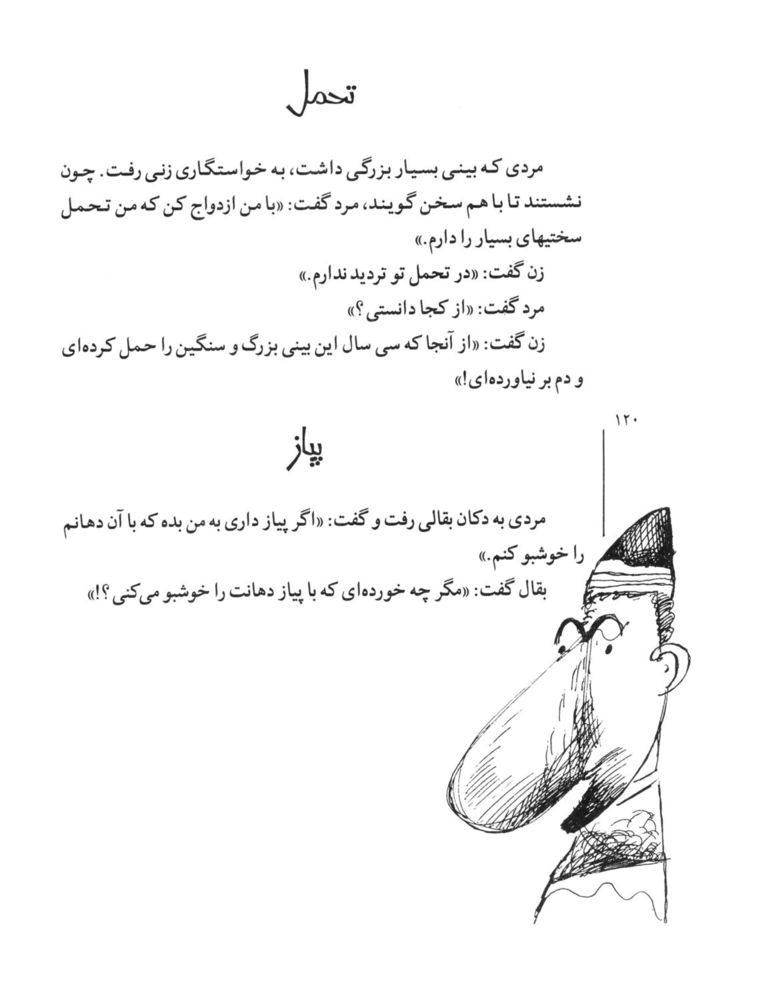 تحمل
مردی که بینی بسیار بزرگی داشت، به خواستگاری زنی رفت. چون
نشستند تا با هم سخن گویند، مرد گفت: «با من ازدواج کن که من تحمل
سختیهای بسیار را دارم.»
زن گفت: «در تحمل تو تردید ندارم.»
مرد گفت: «از کجا دانستی؟»
زن گفت: «از آنجا که سی سال این بینی بزرگ و سنگین را حمل کرده‌ای
و دم بر نیاورده‌ای!»
۱۲۰
پیاز
مردی به دکان بقالی رفت و گفت: «اگر پیاز داری به من بده که با آن دهانم
را خوشبو کنم.»
بقال گفت: «مگر چه خورده‌ای که با پیاز دهانت را خوشبو می‌کنی؟!»